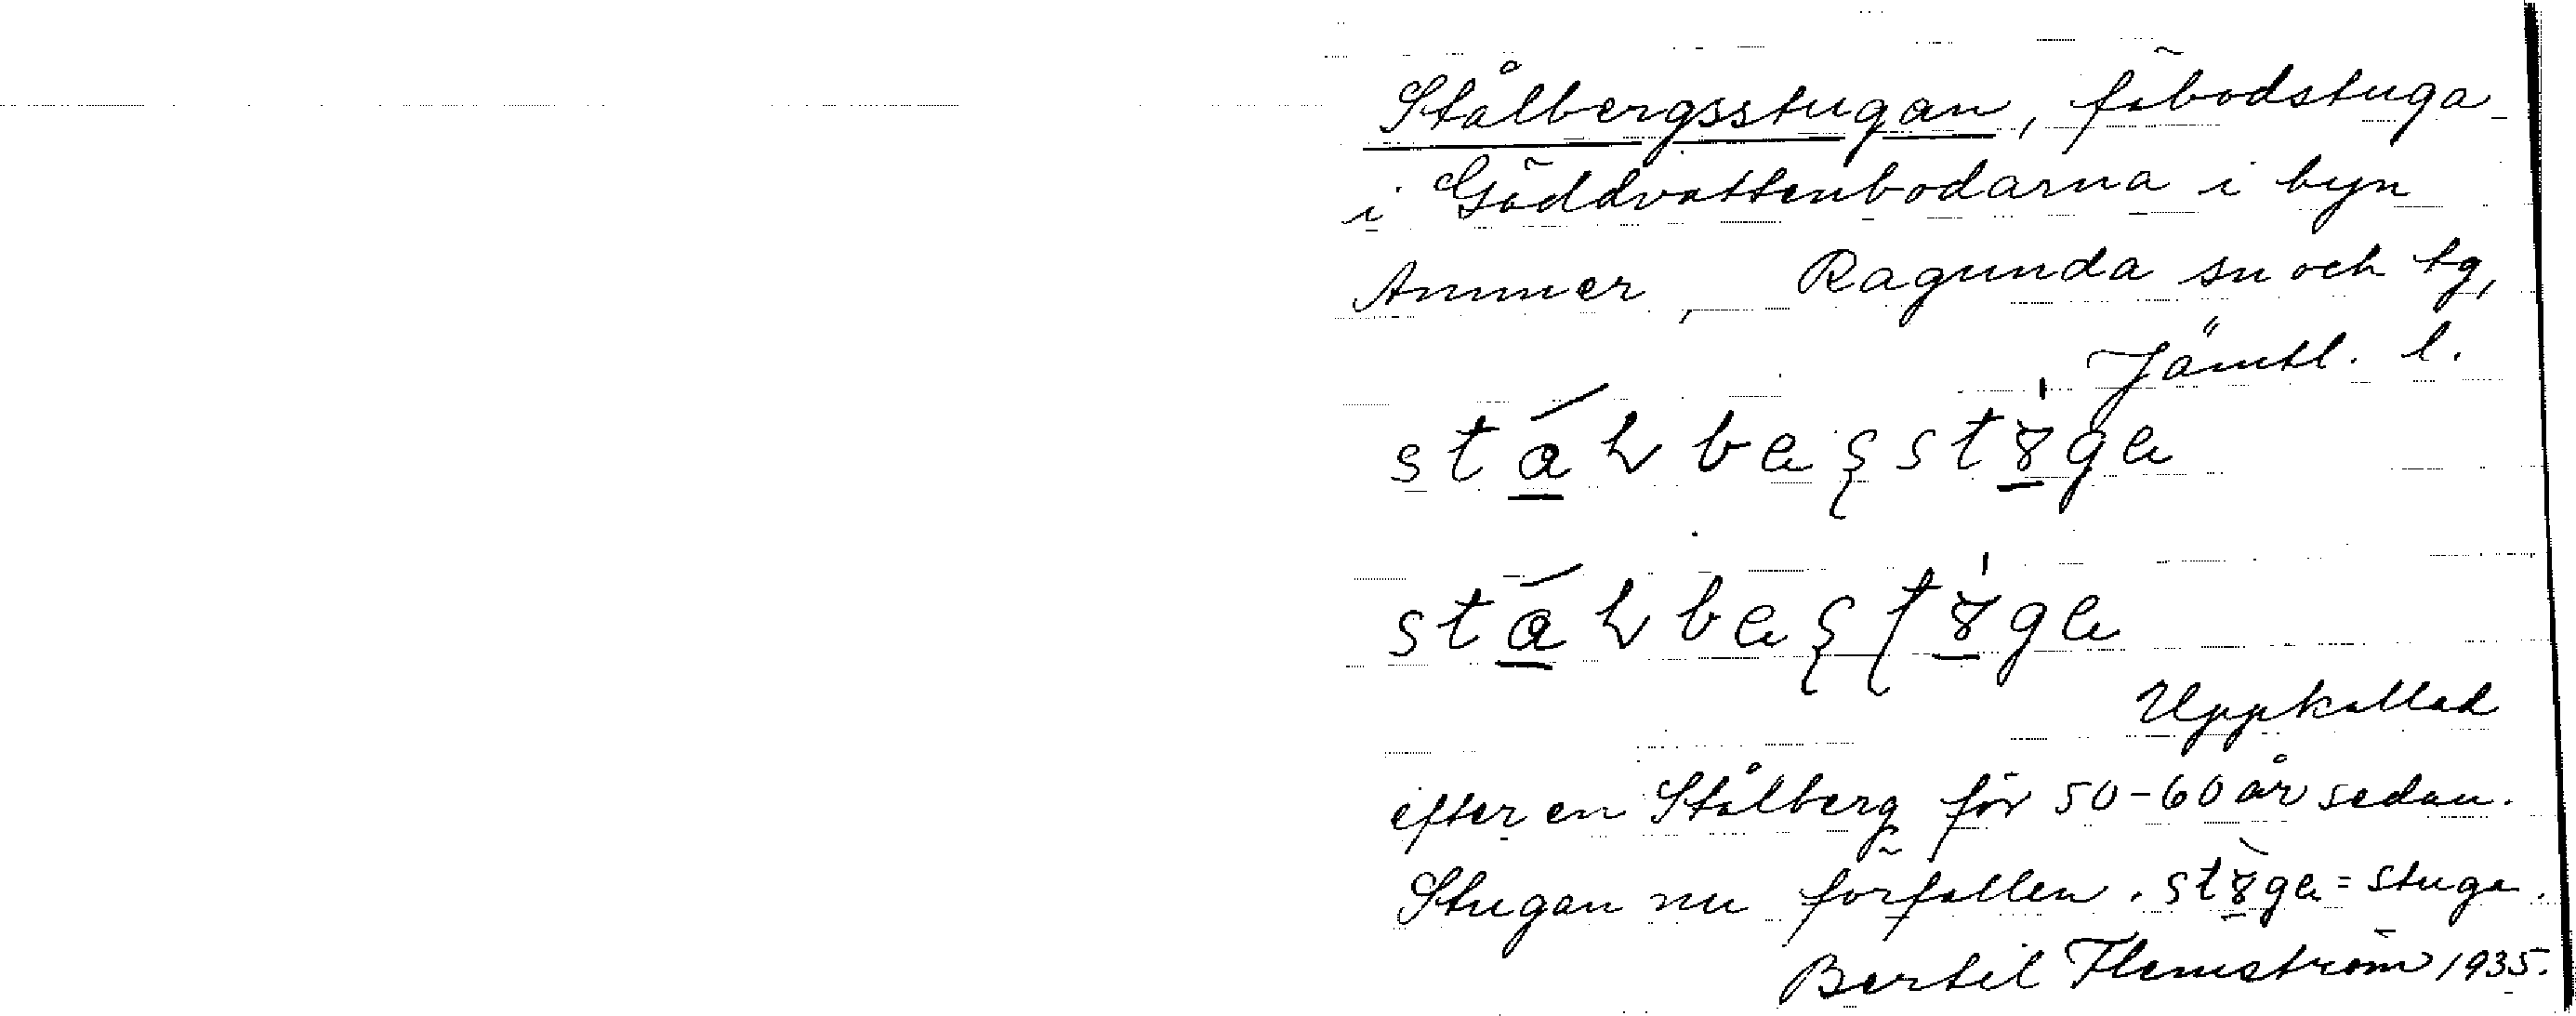 Stålbergsstugan, fäbodstuga
i Gäddvattenbodarna i byn
Ammer, Ragunda sn och tg,
Jämtl. l.
Uppkallad
efter en Stålberg för 50-60 år sedan.
Stugan nu förfallen. = stuga.
Bertil Flemström 1935.